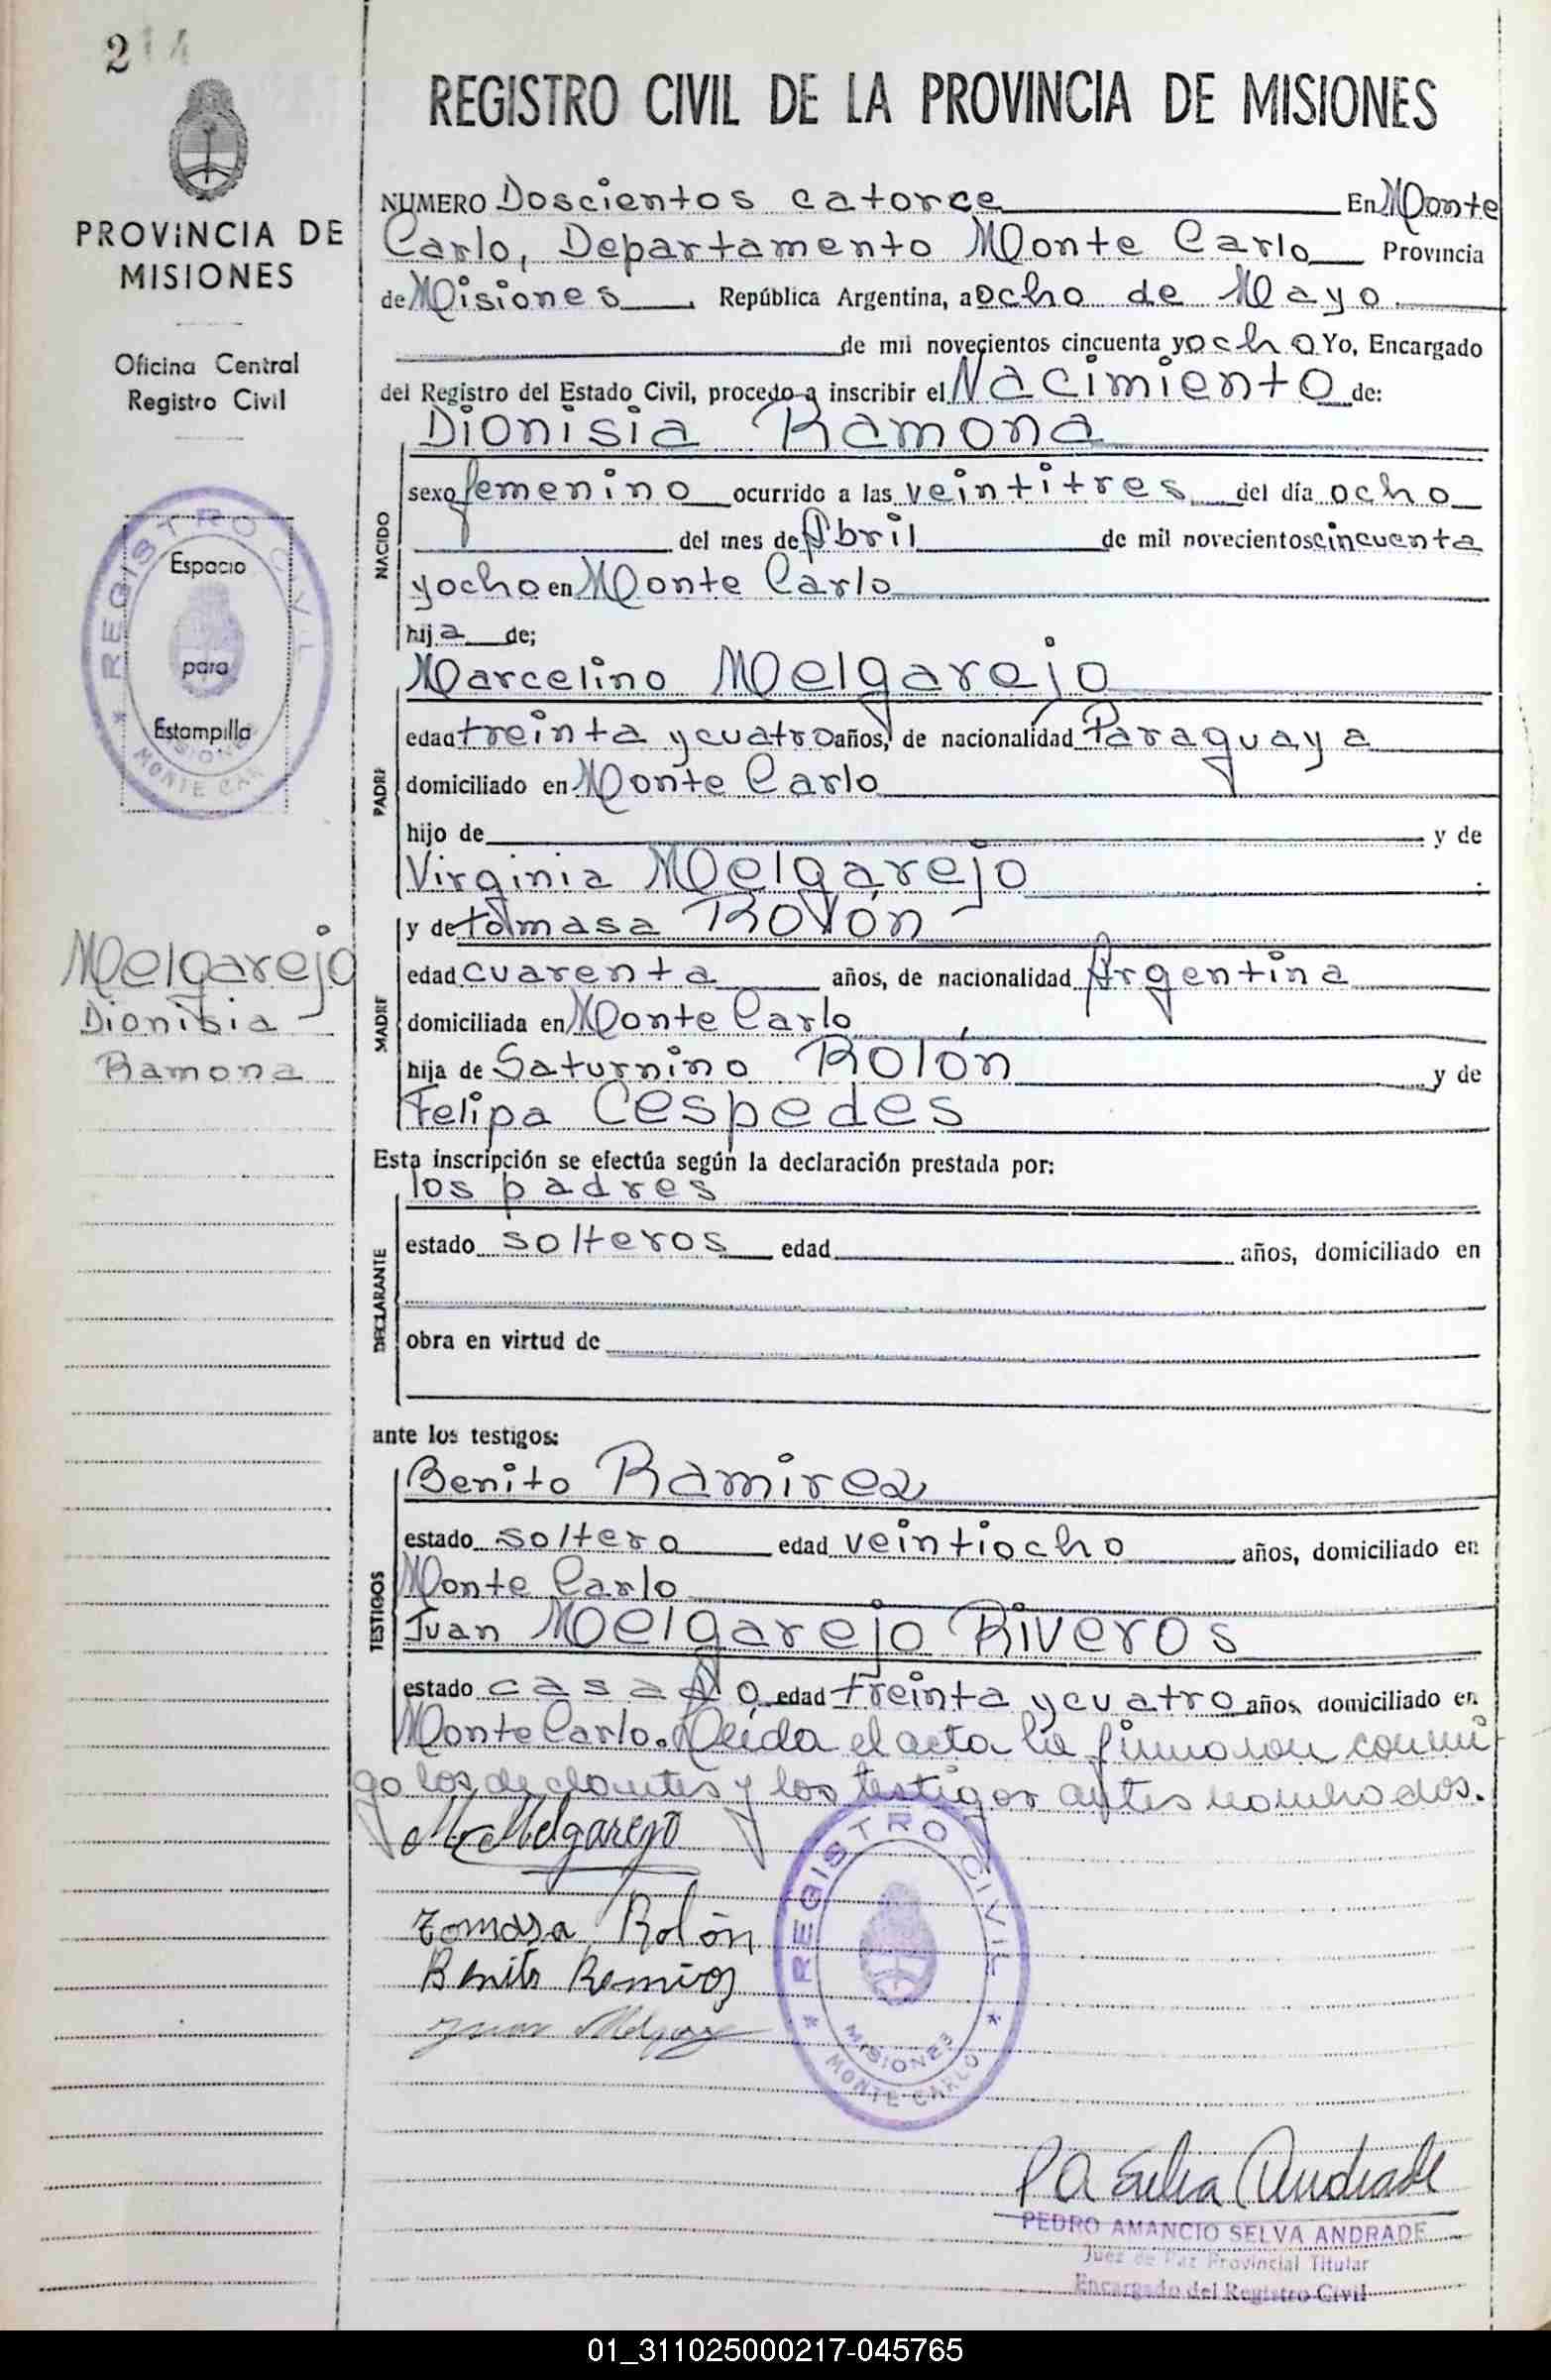 214
PROVINCIA DE
MISIONES
Oficina Central
Registro Civil
REGISTRO CIVIL
Espacio
para
Estampilla
MISIONES
MONTE CAR
Melgarejo
Dionisia
Ramona
REGISTRO CIVIL DE LA PROVINCIA DE MISIONES
NUMERO Doscientos catorce En Monte
Carlo, Departamento Monte Carlo Provincia
de Misiones, República Argentina, a ocho de Mayo
de mil novecientos cincuenta y ocho Yo, Encargado
del Registro del Estado Civil, procedo a inscribir el Nacimiento de:
Dionisia Ramona
NACIDO
sexo femenino ocurrido a las veintitres del día ocho
del mes de Abril de mil novecientos cincuenta
y ocho en Monte Carlo
hija de;
Marcelino Melgarejo
PADRE
edad treinta y cuatro años, de nacionalidad Paraguaya
domiciliado en Monte Carlo
hijo de y de
Virginia Melgarejo
y de tomasa Rolón
MADRE
edad cuarenta años, de nacionalidad Argentina
domiciliada en Monte Carlo
hija de Saturnino Rolón y de
Felipa Cespedes
Esta inscripción se efectúa según la declaración prestada por:
los padres
DECLARANTE
estado solteros edad años, domiciliado en
obra en virtud de
ante los testigos:
Benito Ramirez
TESTIGOS
estado soltero edad veintiocho años, domiciliado en
Monte Carlo
Juan Melgarejo Riveros
estado casado edad treinta y cuatro años domiciliado en
Monte Carlo. Leída el acta la firmaron conmi-
go los declantes y los testigos antes nombrados.
M Melgarejo
Tomasa Rolón
Benito Ramirez
Juan Melgarejo
REGISTRO CIVIL
MISIONES
MONTE CARLO
P A Selva Andrade
PEDRO AMANCIO SELVA ANDRADE
Juez de Paz Provincial Titular
Encargado del Registro Civil
01_311025000217-045765